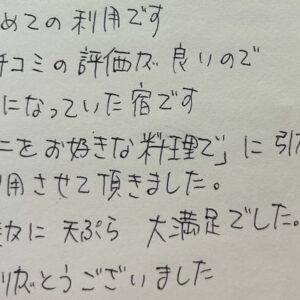 めての利用です
チコミの評価が良いので
になっていた宿です
ニをお好きな料理で」に引
用させて頂きました。
に 天ぷら 大満足でした。
がとうございました